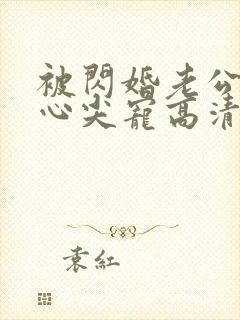 被閃婚老公
心尖寵高清
袁紅